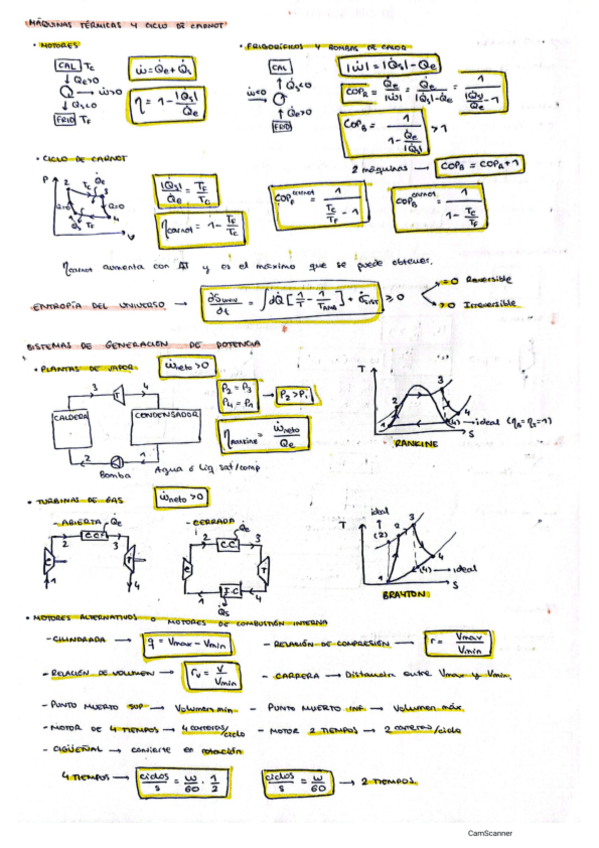 MÁQUINAS TÉRMICAS Y CICLO DE CARNOT
• MOTORES
CAL TC
↓ Q̇e>0
→ ẇ>0
↓ Q̇s<0
FRIO TF
ẇ = Q̇e + Q̇s
η = 1 - |Q̇s| / Q̇e
• FRIGORÍFICOS Y BOMBAS DE CALOR
CAL
↑ Q̇s<0
ẇ<0
↑ Q̇e>0
FRIO
|ẇ| = |Q̇s| - Q̇e
COPR = Q̇e / |ẇ| = Q̇e / (|Q̇s| - Q̇e) = 1 / (|Q̇s|/Q̇e - 1)
COPB = 1 / (1 - Q̇e/|Q̇s|) > 1
2 máquinas → COPB = COPR + 1
• CICLO DE CARNOT
P 2 Q̇e
TC 3
Q=0 Q=0
1 4
Q̇s TF
V
|Q̇s| / Q̇e = TF / TC
ηcarnot = 1 - TF / TC
ηcarnot aumenta con ΔT y es el máximo que se puede obtener.
ENTROPÍA DEL UNIVERSO →
≥ 0
= 0 Reversible
> 0 Irreversible
SISTEMAS DE GENERACIÓN DE POTENCIA
• PLANTAS DE VAPOR
ẇneto>0
3 T 4
CALDERA
CONDENSADOR
2 1
Bomba
Agua o Liq sat/comp
P2 = P3
P4 = P1
→ P2 > P1
ηRANKINE = ẇneto / Q̇e
T
3
2
4
1 (4) → ideal
S
RANKINE
• TURBINAS DE GAS
ẇneto>0
- ABIERTA
Q̇e
2 C.C. 3
C T
1 4
- CERRADA
Q̇e
2 C.C. 3
C T
1 4
Q̇s
ideal
T (2) 2 3
4
(4) → ideal
1 S
BRAYTON
• MOTORES ALTERNATIVOS o MOTORES DE COMBUSTIÓN INTERNA
- CILINDRADA → q = Vmax - Vmin
- RELACIÓN DE COMPRESIÓN → r = Vmax / Vmin
- RELACIÓN DE VOLUMEN → rv = V / Vmin
- CARRERA → Distancia entre Vmax y Vmin.
- PUNTO MUERTO SUP → Volumen mín
- PUNTO MUERTO INF → Volumen máx.
- MOTOR DE 4 TIEMPOS → 4 carreras/ciclo
- MOTOR 2 TIEMPOS → 2 carreras/ciclo
- CIGÜEÑAL → convierte en rotación
4 TIEMPOS → ciclos / s = w / 60 · 1 / 2
ciclos / s = w / 60 → 2 TIEMPOS
CamScanner